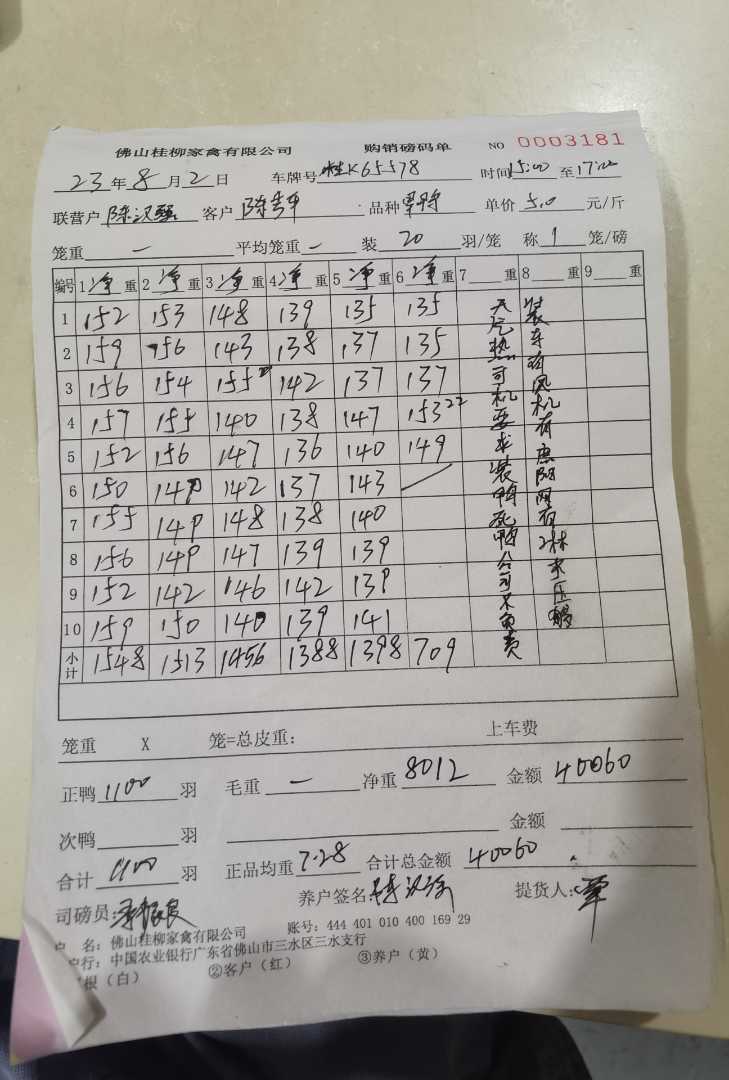 佛山桂柳家禽有限公司 购销磅码单 NO 0003181
23年8月2日 车牌号桂K65578 时间15:00至17:00
联营户 陈汉强 客户 品种 单价 5.0 元/斤
笼重 — 平均笼重 — 装 20 羽/笼 称 1 笼/磅
编号 1净重 2净重 3净重 4净重 5净重 6净重 7重 8重 9重
1 152 153 148 139 135 135
2 159 156 143 138 137 135
3 156 154 155 142 137 137
4 157 155 140 138 147 153 22
5 152 156 147 136 140 149
6 150 149 142 137 143
7 155 149 148 138 140
8 156 149 147 139 139
9 152 142 146 142 139
10 159 150 140 139 141
小计 1548 1513 1456 1388 1398 709
天气热司机要求装鸭死鸭公司不负责
装车有风机有
笼重 X 笼=总皮重: 上车费
正鸭 1100 羽 毛重 — 净重 8012 金额 40060
次鸭 羽 金额
合计 1100 羽 正品均重 7.28 合计总金额 40060
养户签名: 提货人: 覃
司磅员:
户 名: 佛山桂柳家禽有限公司 账号: 444 401 010 400 169 29
户行: 中国农业银行广东省佛山市三水区三水支行
根(白) ②客户(红) ③养户(黄)